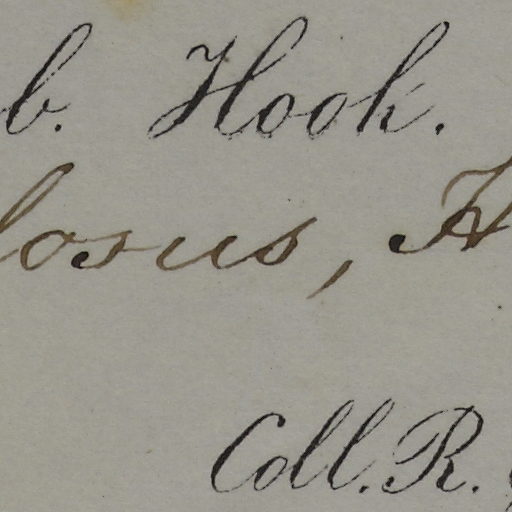 b. Hook.
losus, H
Coll. R.